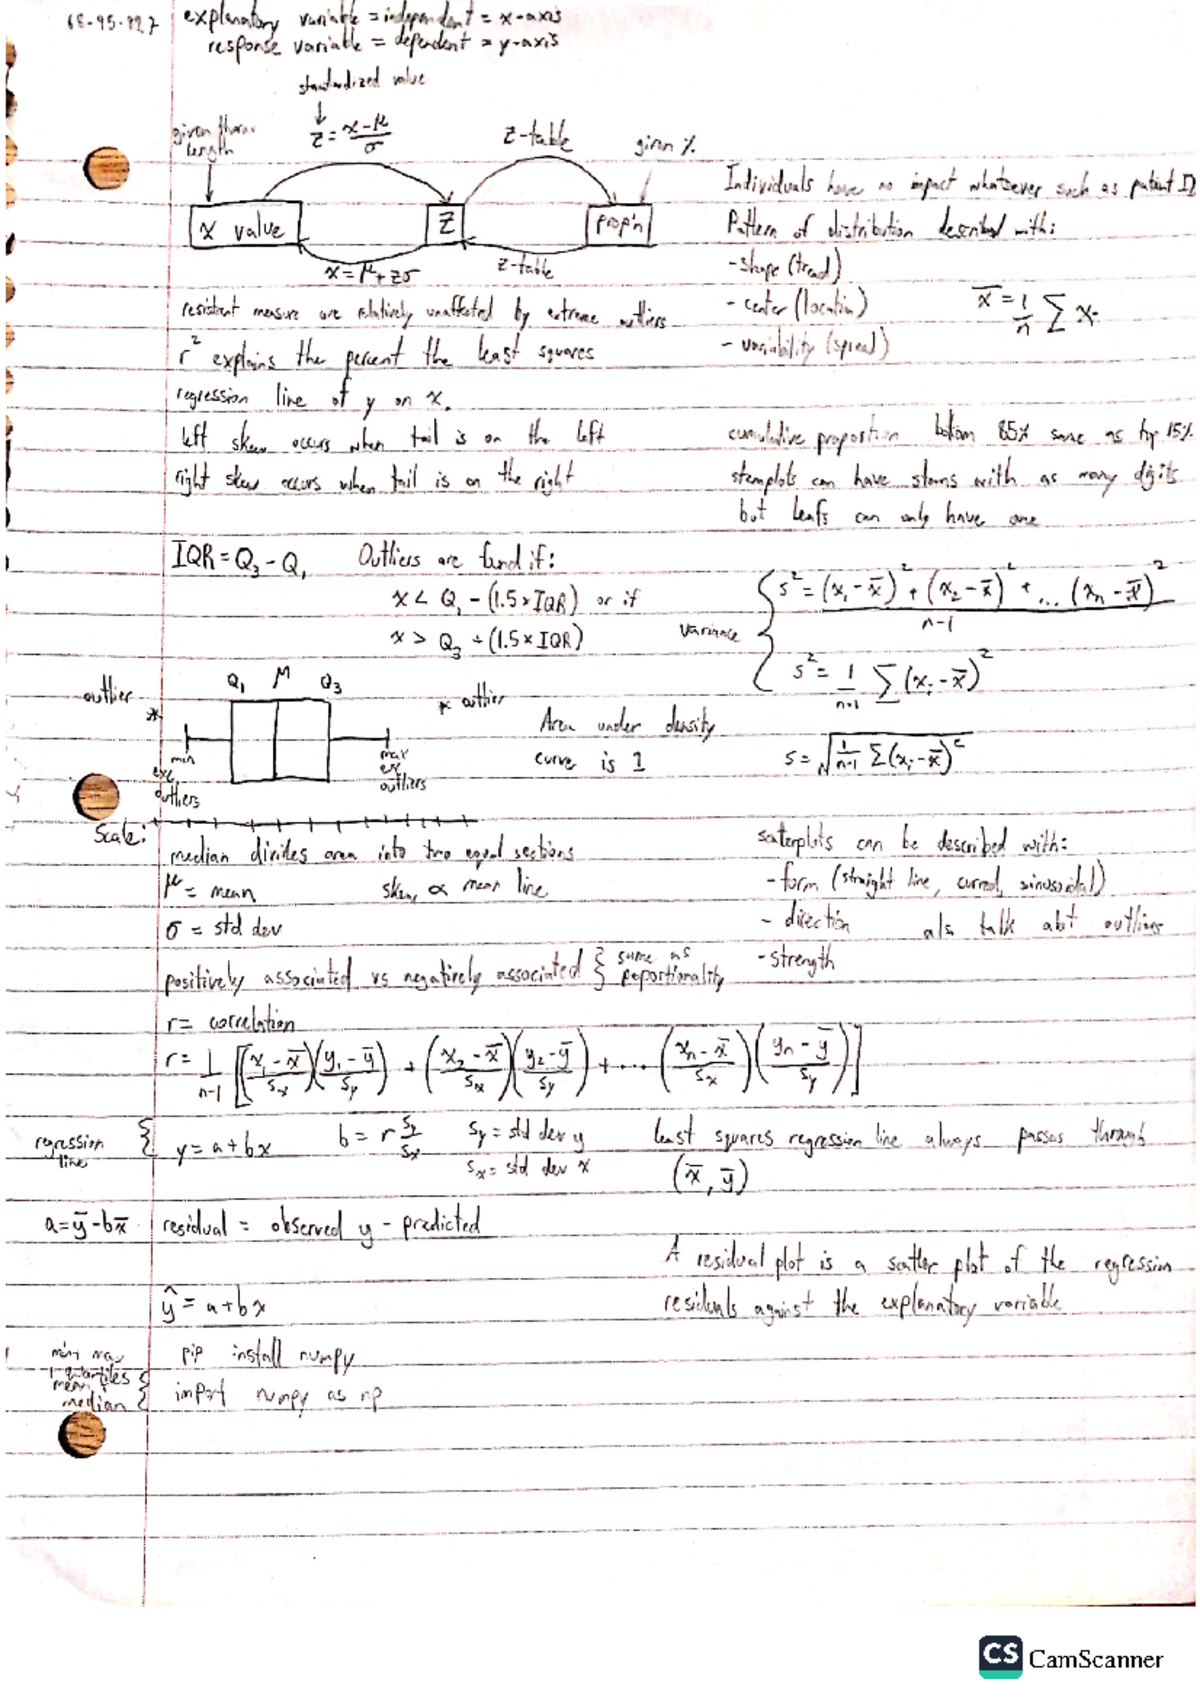 68-95-99.7 explanatory variable = independent = x-axis
response variable = dependent = y-axis
standardized value
given
length
z = x-μ/σ
Z-table
given %
x value
Z
prop'n
x = μ+zσ
z-table
Individuals have no impact whatsoever such as patient ID
Pattern of distribution described with:
- shape (trend)
- center (location)
- variability (spread)
x̄ = 1/n ∑ xᵢ
resistant measure are relatively unaffected by extreme outliers
r² explains the percent the least squares
regression line of y on x.
left skew occurs when tail is on the left
right skew occurs when tail is on the right
cumulative proportion bottom 85% same as top 15%
stemplots can have stems with as many digits
but leafs can only have one
IQR = Q₃ - Q₁ Outliers are found if:
x < Q₁ - (1.5 × IQR) or if
x > Q₃ + (1.5 × IQR)
variance
s² = (x₁ - x̄)² + (x₂ - x̄)² + ... (xₙ - x̄)² / n-1
s² = 1/n-1 ∑ (xᵢ - x̄)²
s = √1/n-1 ∑(xᵢ - x̄)²
outlier
*
Q₁ M Q₃
* outlier
min
exc
outliers
max
exc
outliers
Area under density
curve is 1
Scale:
median divides area into two equal sections
μ = mean skew ∝ mean line
σ = std dev
positively associated vs negatively associated } same as
proportionality
scatterplots can be described with:
- form (straight line, curved, sinusoidal)
- direction also talk abt outliers
- strength
r = correlation
r = 1/n-1 [(x₁ - x̄/sₓ)(y₁ - ȳ/s_y) + (x₂ - x̄/sₓ)(y₂ - ȳ/s_y) + ... (xₙ - x̄/sₓ)(yₙ - ȳ/s_y)]
regression
line
y = a + bx b = r s_y/sₓ s_y = std dev y
sₓ = std dev x
least squares regression line always passes through
(x̄, ȳ)
a = ȳ - bx̄ residual = observed y - predicted
A residual plot is a scatter plot of the regression
residuals against the explanatory variable
ŷ = a + bx
min, max
quartiles
mean
median
pip install numpy
import numpy as np
CS CamScanner